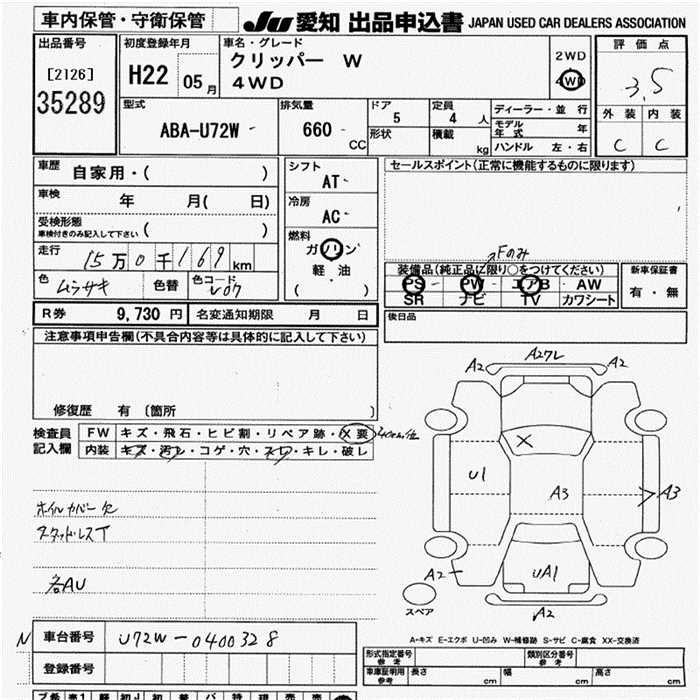 車内保管・守衛保管
JU 愛知 出品申込書 JAPAN USED CAR DEALERS ASSOCIATION
出品番号
[2126]
35289
初度登録年月
H22 05月
車名・グレード
クリッパー W
4WD
2WD
4WD
評価点
3.5
外装 内装
C C
型式
ABA-U72W
排気量
660 CC
ドア
5
形状
定員
4 人
積載
kg
ディーラー・並行
モデル年式 年
ハンドル 左・右
車歴
自家用・( )
車検
年 月( 日)
受検形態
車検付きのみ記入して下さい ( )
走行
15万0千169 km
色
ムラサキ
色替
色コード
V07
シフト
AT
冷房
AC
燃料
ガソリン
軽・油
( )
セールスポイント(正常に機能するものに限ります)
Fのみ
装備品(純正品に限り○をつけてください)
PS PW エアB AW
SR ナビ TV カワシート
新車保証書
有・無
後日品
R券 9,730円 名変通知期限 月 日
注意事項申告欄(不具合内容等は具体的に記入して下さい)
修復歴 有 〔箇所 〕
検査員記入欄
FW キズ・飛石・ヒビ割・リペア跡・X要 40cm位
内装 キズ・汚レ・コゲ・穴・スレ・キレ・破レ
ホイルカバー欠
スタッドレスT
各AU
A2 A27レ A2
X
U1
A3
A3
A2
UA1
A2
スペア
A-キズ E-エクボ U-凹み W-補修跡 S-サビ C-腐食 XX-交換済
N 車台番号 U72W-0400328
登録番号
形式指定番号 参考
類別区分番号 参考
車庫証明用 参考 長さ cm 幅 cm 高さ cm